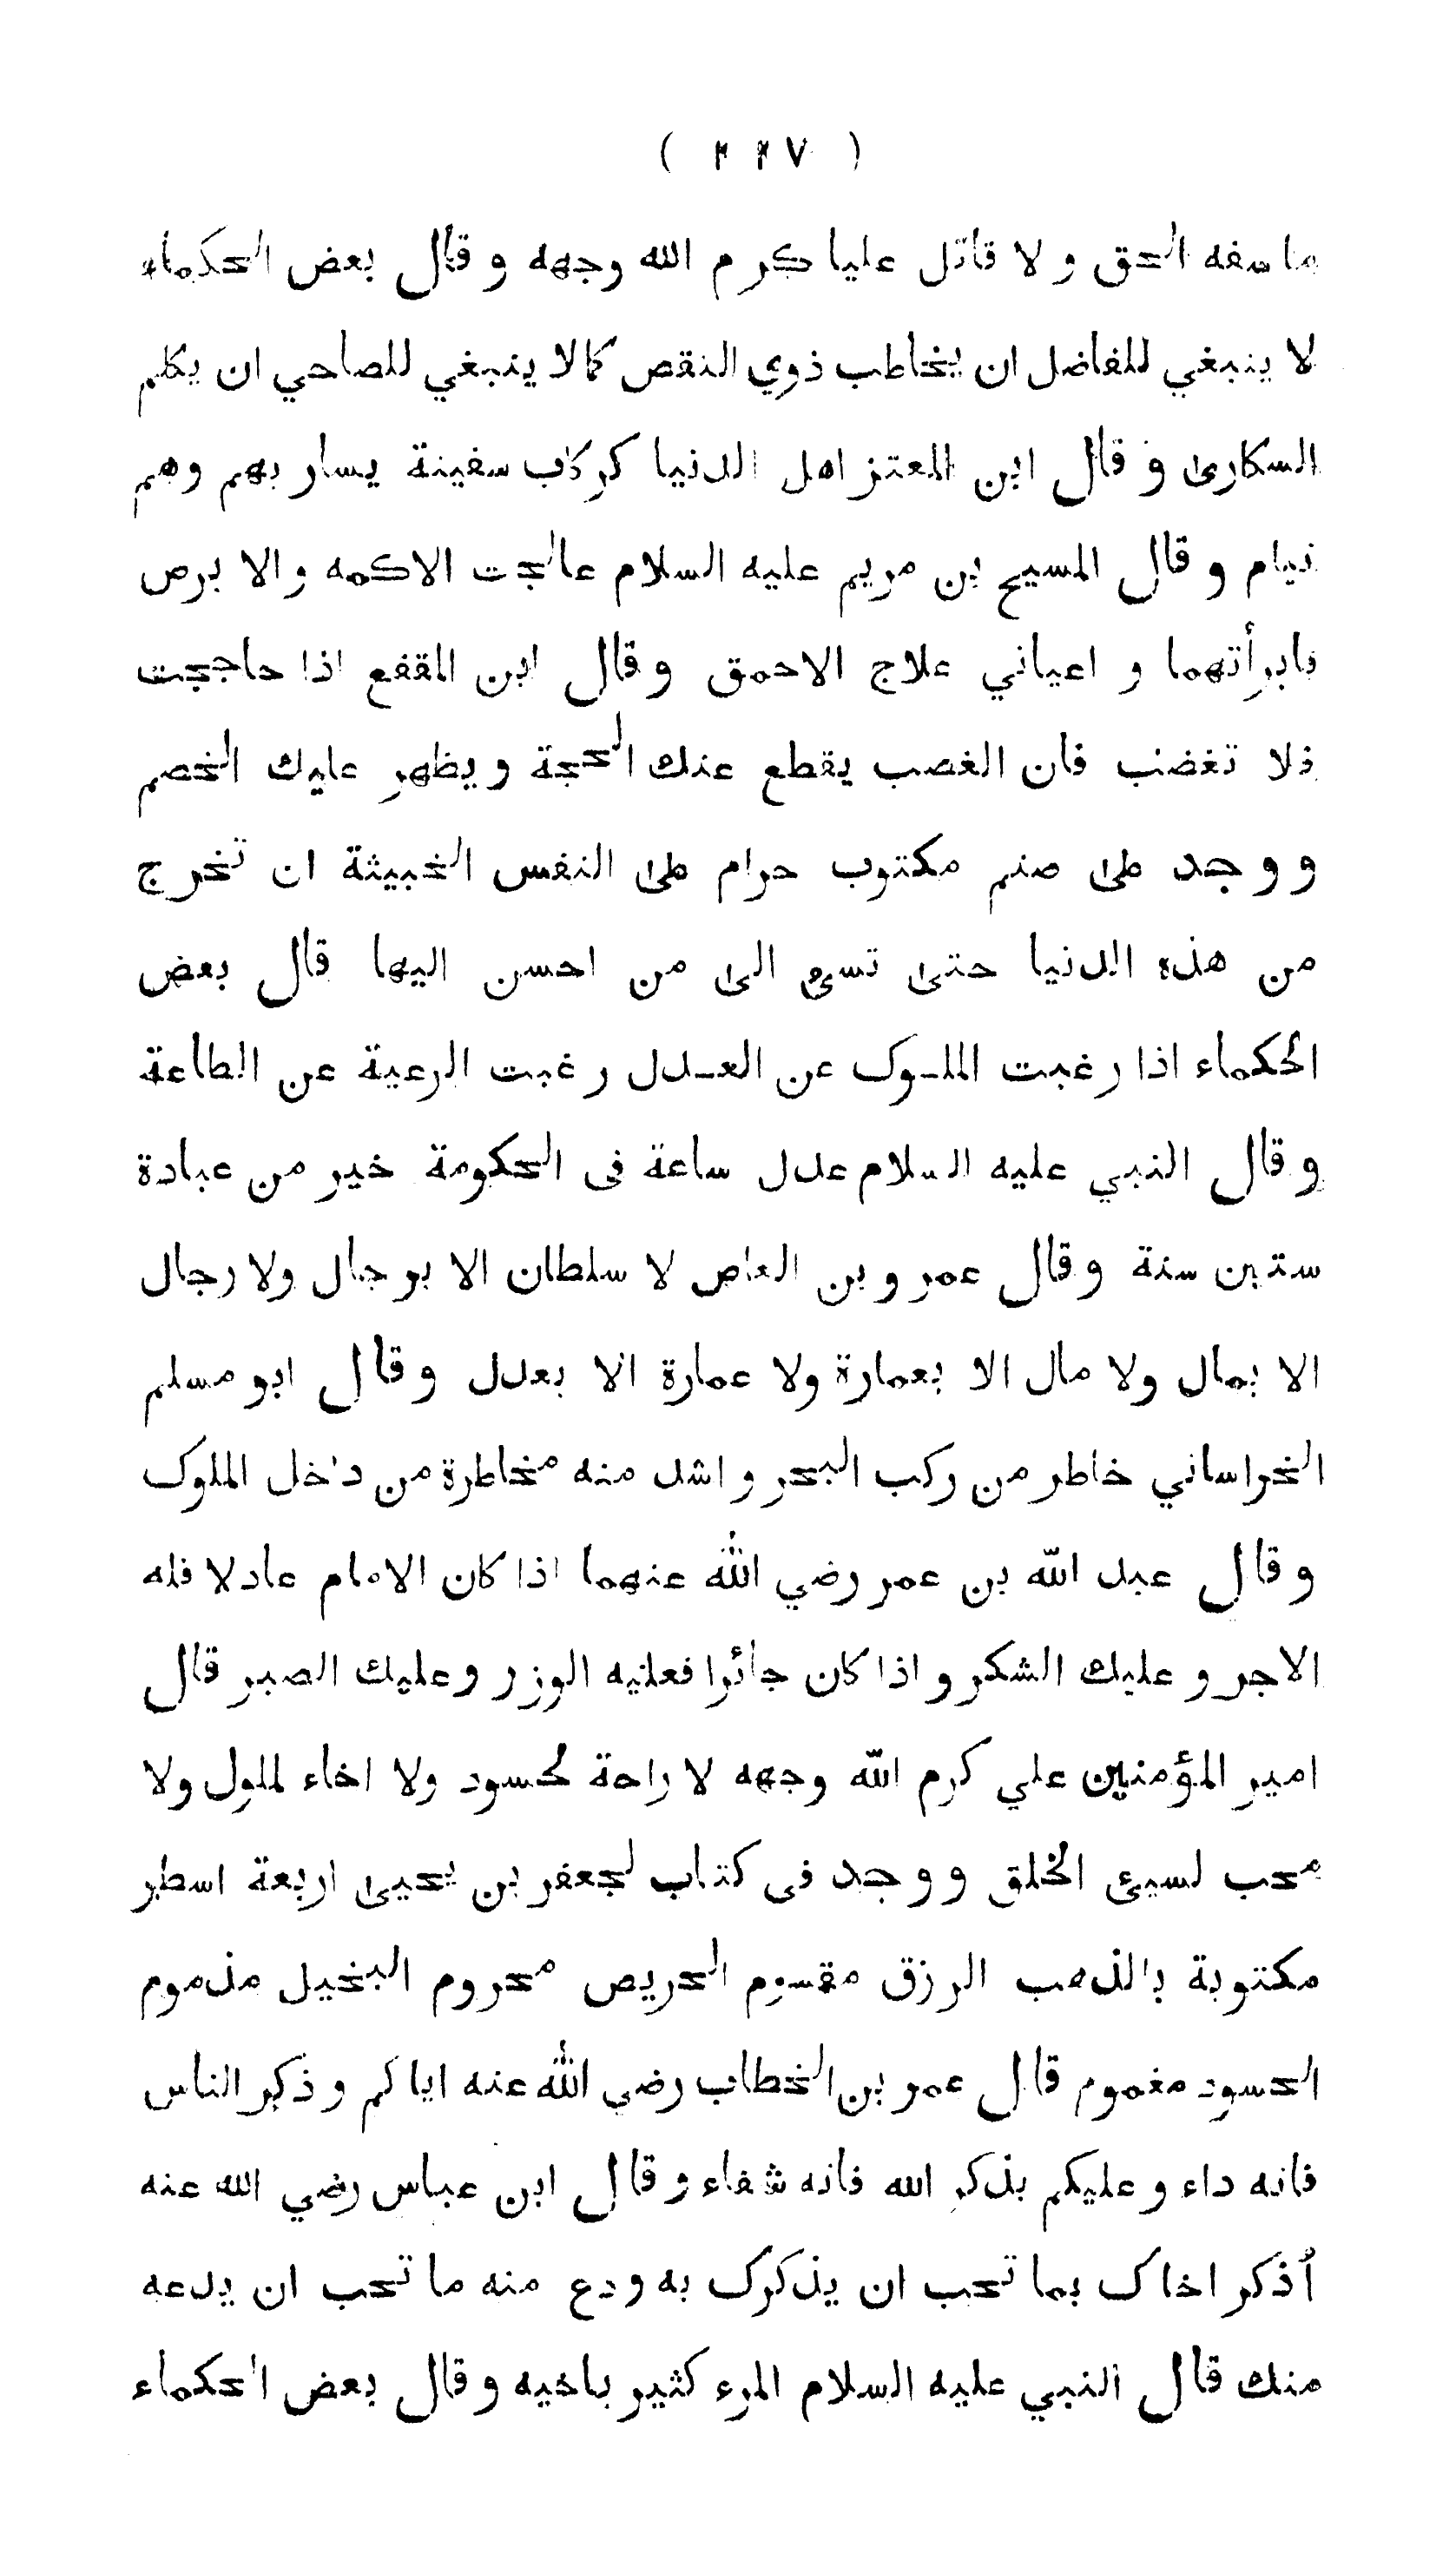 ( ٢٢٧ )
ما سفه الحق و لا قاتل عليا كرم الله وجهه و قال بعض الحكماء
لا ينبغي للفاضل ان يخاطب ذوي النقص كما لا ينبغي للصاحي ان يكلم
السكارى و قال ابن المعتز اهل الدنيا كركاب سفينة يسار بهم وهم
نيام و قال المسيح بن مريم عليه السلام عالجت الاكمه والا برص
فابرأتهما و اعياني علاج الاحمق وقال ابن المقفع اذا حاججت
فلا تغضب فان الغضب يقطع عنك الحجة ويظهر عليك الخصم
و وجد على صنم مكتوب حرام على النفس الخبيثة ان تخرج
من هذه الدنيا حتى تسئ الى من احسن اليها قال بعض
الحكماء اذا رغبت الملـوك عن العـدل رغبت الرعية عن الطاعة
وقال النبي عليه السلام عدل ساعة فى الحكومة خير من عبادة
ستين سنة وقال عمرو بن العاص لا سلطان الا برجال ولا رجال
الا بمال ولا مال الا بعمارة ولا عمارة الا بعدل وقال ابو مسلم
الخراساني خاطر من ركب البحر و اشد منه مخاطرة من داخل الملوك
وقال عبد الله بن عمر رضي الله عنهما اذا كان الامام عادلا فله
الاجر و عليك الشكر و اذا كان جائرا فعليه الوزر وعليك الصبر قال
امير المؤمنين علي كرم الله وجهه لا راحة لحسود ولا اخاء لملول ولا
محب لسيئ الخلق و وجد فى كتاب لجعفر بن يحيى اربعة اسطر
مكتوبة بالذهب الرزق مقسوم الحريص محروم البخيل مذموم
الحسود مغموم قال عمر بن الخطاب رضي الله عنه اياكم و ذكر الناس
فانه داء و عليكم بذكر الله فانه شفاء وقال ابن عباس رضي الله عنه
أذكر اخاك بما تحب ان يذكرك به ودع منه ما تحب ان يدعه
منك قال النبي عليه السلام المرء كثير باخيه وقال بعض الحكماء